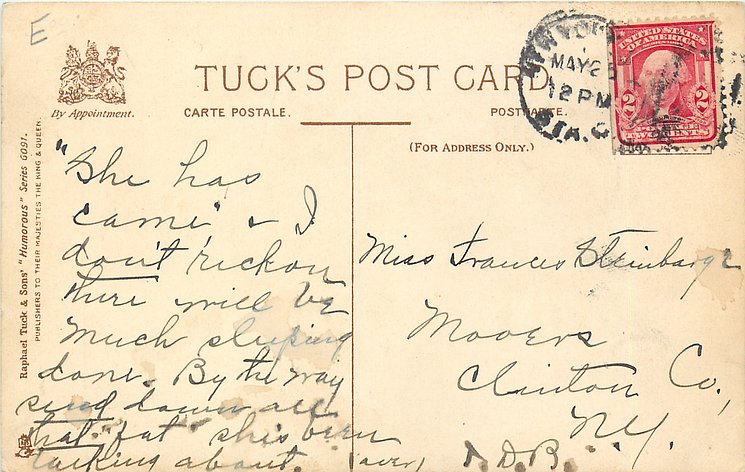 E
By Appointment.
TUCK'S POST CARD.
CARTE POSTALE. POSTKARTE.
(FOR ADDRESS ONLY.)
Raphael Tuck & Sons' "Humorous" Series 6091.
PUBLISHERS TO THEIR MAJESTIES THE KING & QUEEN.
MAY 25
12 PM
STA. C
UNITED STATES
OF AMERICA
2 2
TWO CENTS
"She has
came" & I
don't reckon
there will be
much sleeping
done. By the way
send down all
that "fat" she's been
talking about. (over)
Miss Frances
Mooers
Clinton Co,
N.Y.